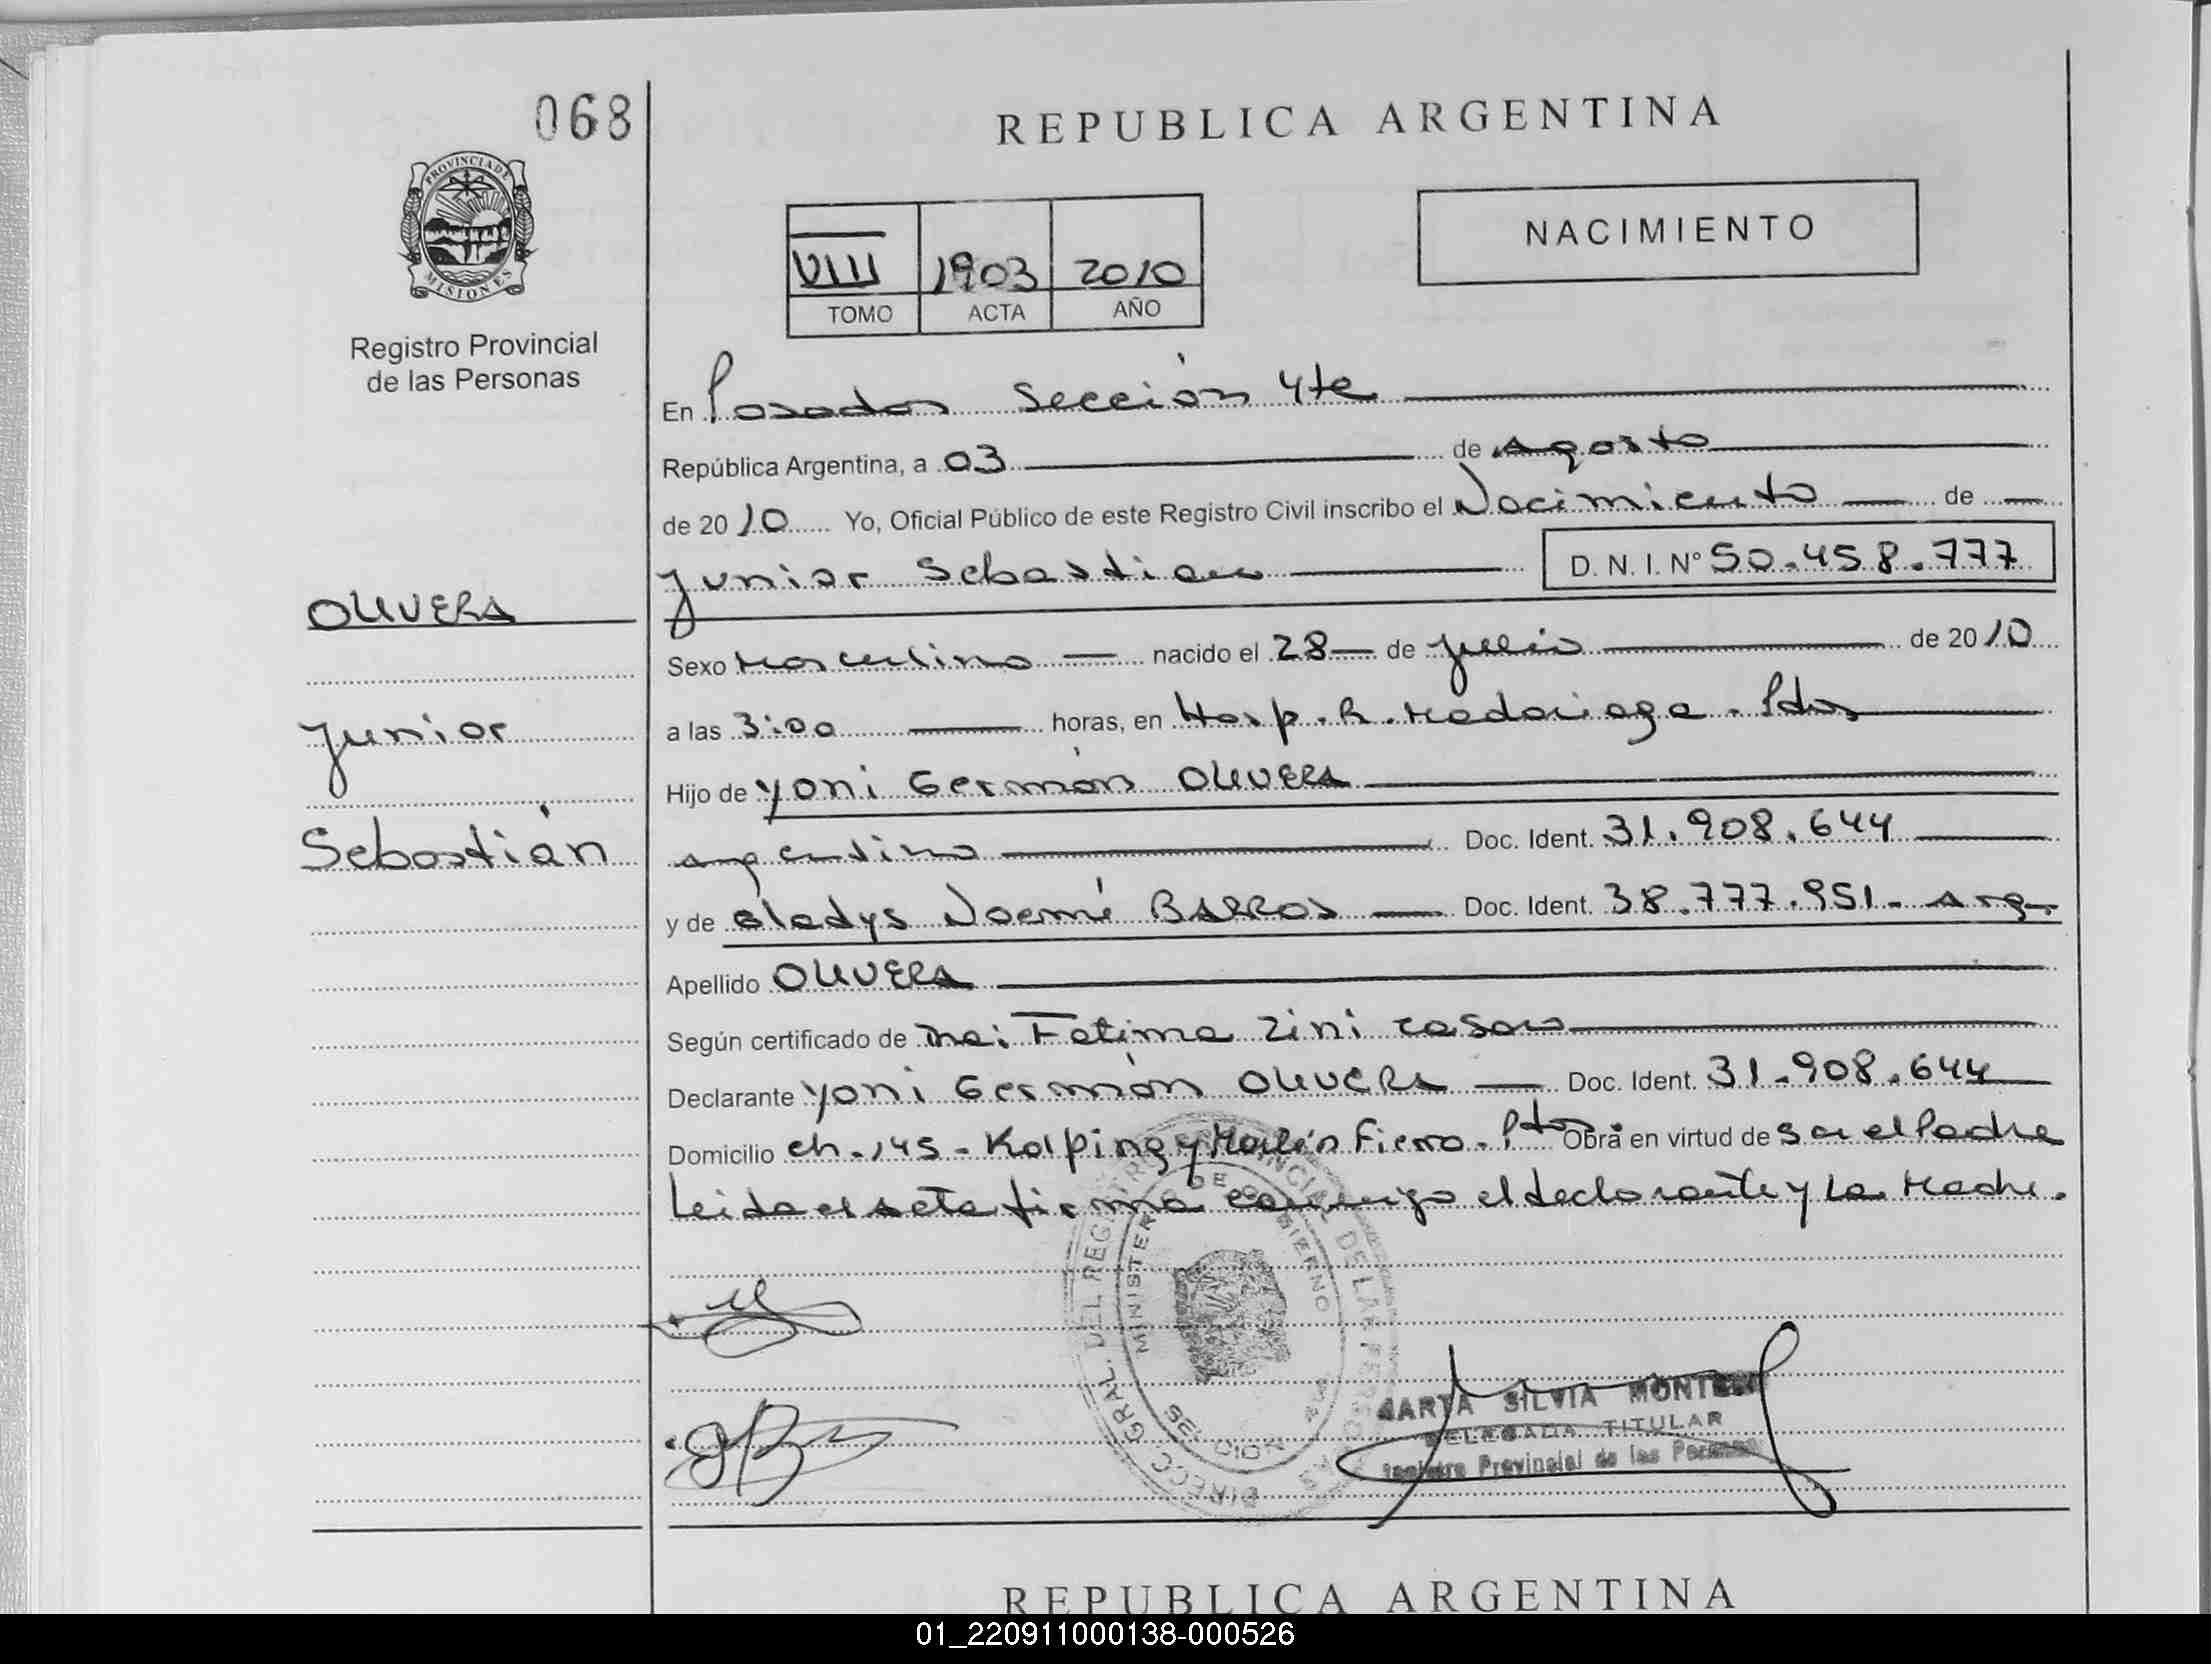 068
REPUBLICA ARGENTINA
PROVINCIA DE
MISIONES
Registro Provincial
de las Personas
VIII 1903 2010
TOMO ACTA AÑO
NACIMIENTO
En Posadas Sección 4ta
República Argentina, a 03 de Agosto
de 2010 Yo, Oficial Público de este Registro Civil inscribo el Nacimiento de
Junior Sebastian D. N. I. N° 50.458.777
OLIVERA
Sexo Masculino nacido el 28 de Julio de 2010
Junior
a las 3:00 horas, en Hosp. R. Madariaga. Pdas
Hijo de Yoni Germán OLIVERA
Sebastián
argentino Doc. Ident. 31.908.644
y de Gladys Noemí BARROS Doc. Ident. 38.777.951. Arg.
Apellido OLIVERA
Según certificado de Fatima Zini
Declarante Yoni Germán OLIVERA Doc. Ident. 31.908.644
Domicilio ch. 145 - Kolping y Martín Fierro. Pdas Obra en virtud de Ser el Padre
Leida el acta firma conmigo el declarante y La Madre.
DIRECC. GRAL. DEL REGISTRO PROVINCIAL DE LAS PERSONAS
MINISTERIO DE GOBIERNO
MARTA SILVIA
DELEGADA TITULAR
Registro Provincial de las Personas
REPUBLICA ARGENTINA
01_220911000138-000526